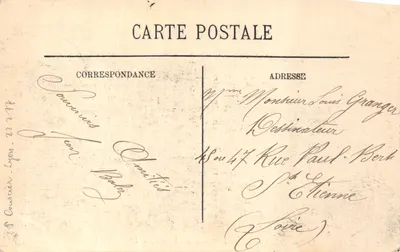 CARTE POSTALE
CORRESPONDANCE
Souvenirs
Amitiés
Jean
ADRESSE
Monsieur Louis Granger
Dessinateur
45 ou 47 Rue Paul-Bert
St Etienne
(Loire)